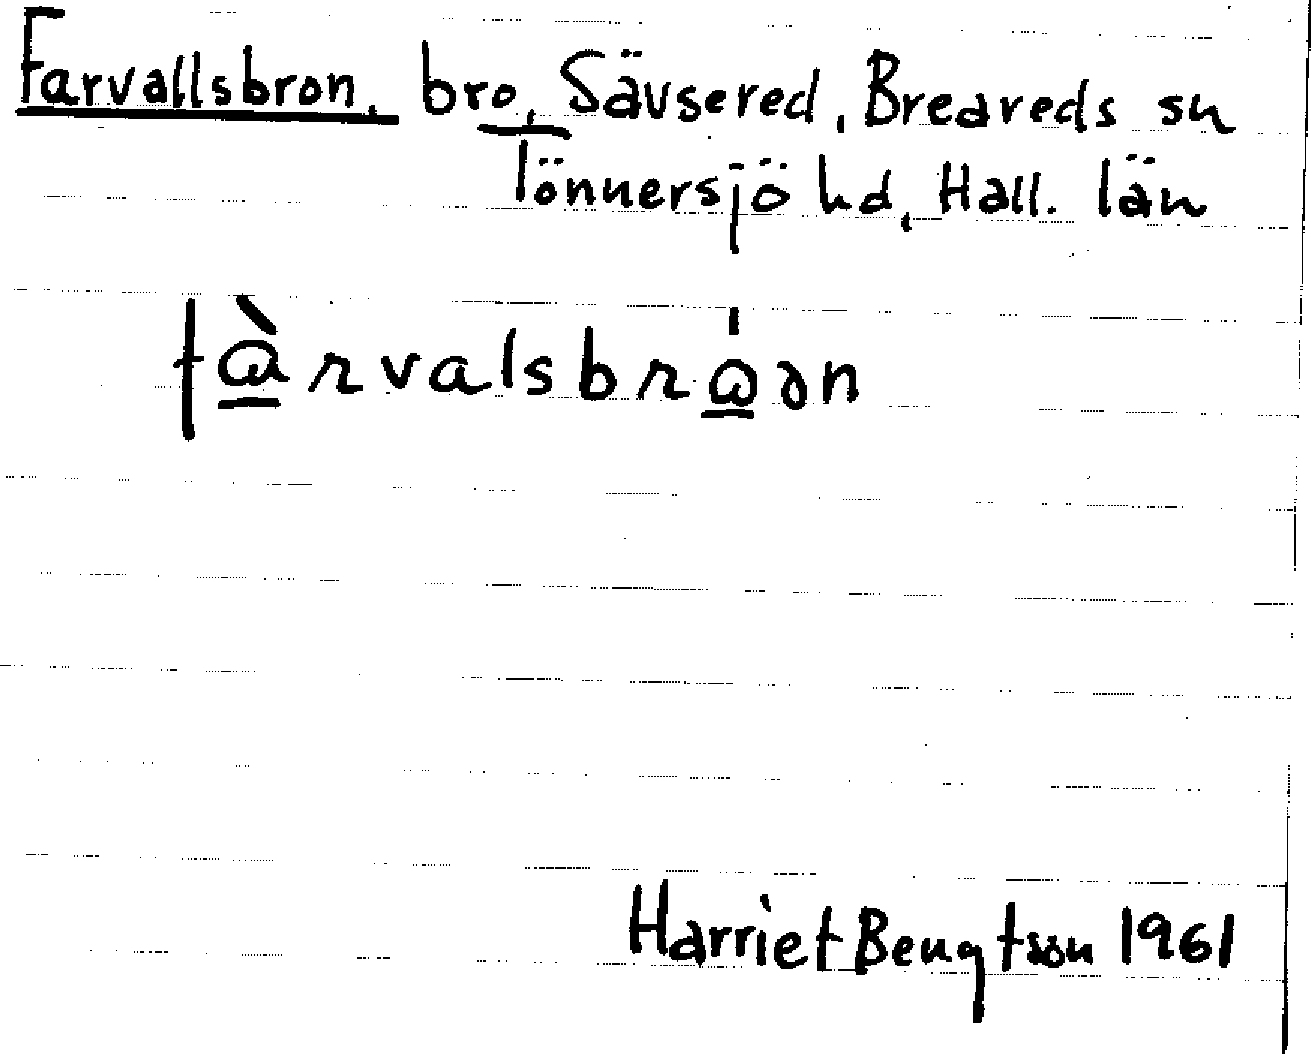 Farvallsbron, bro, Sävsered, Breareds sn
Tönnersjö hd, Hall. län
fàrvalsbrɷ́ən
Harriet Bengtsson 1961